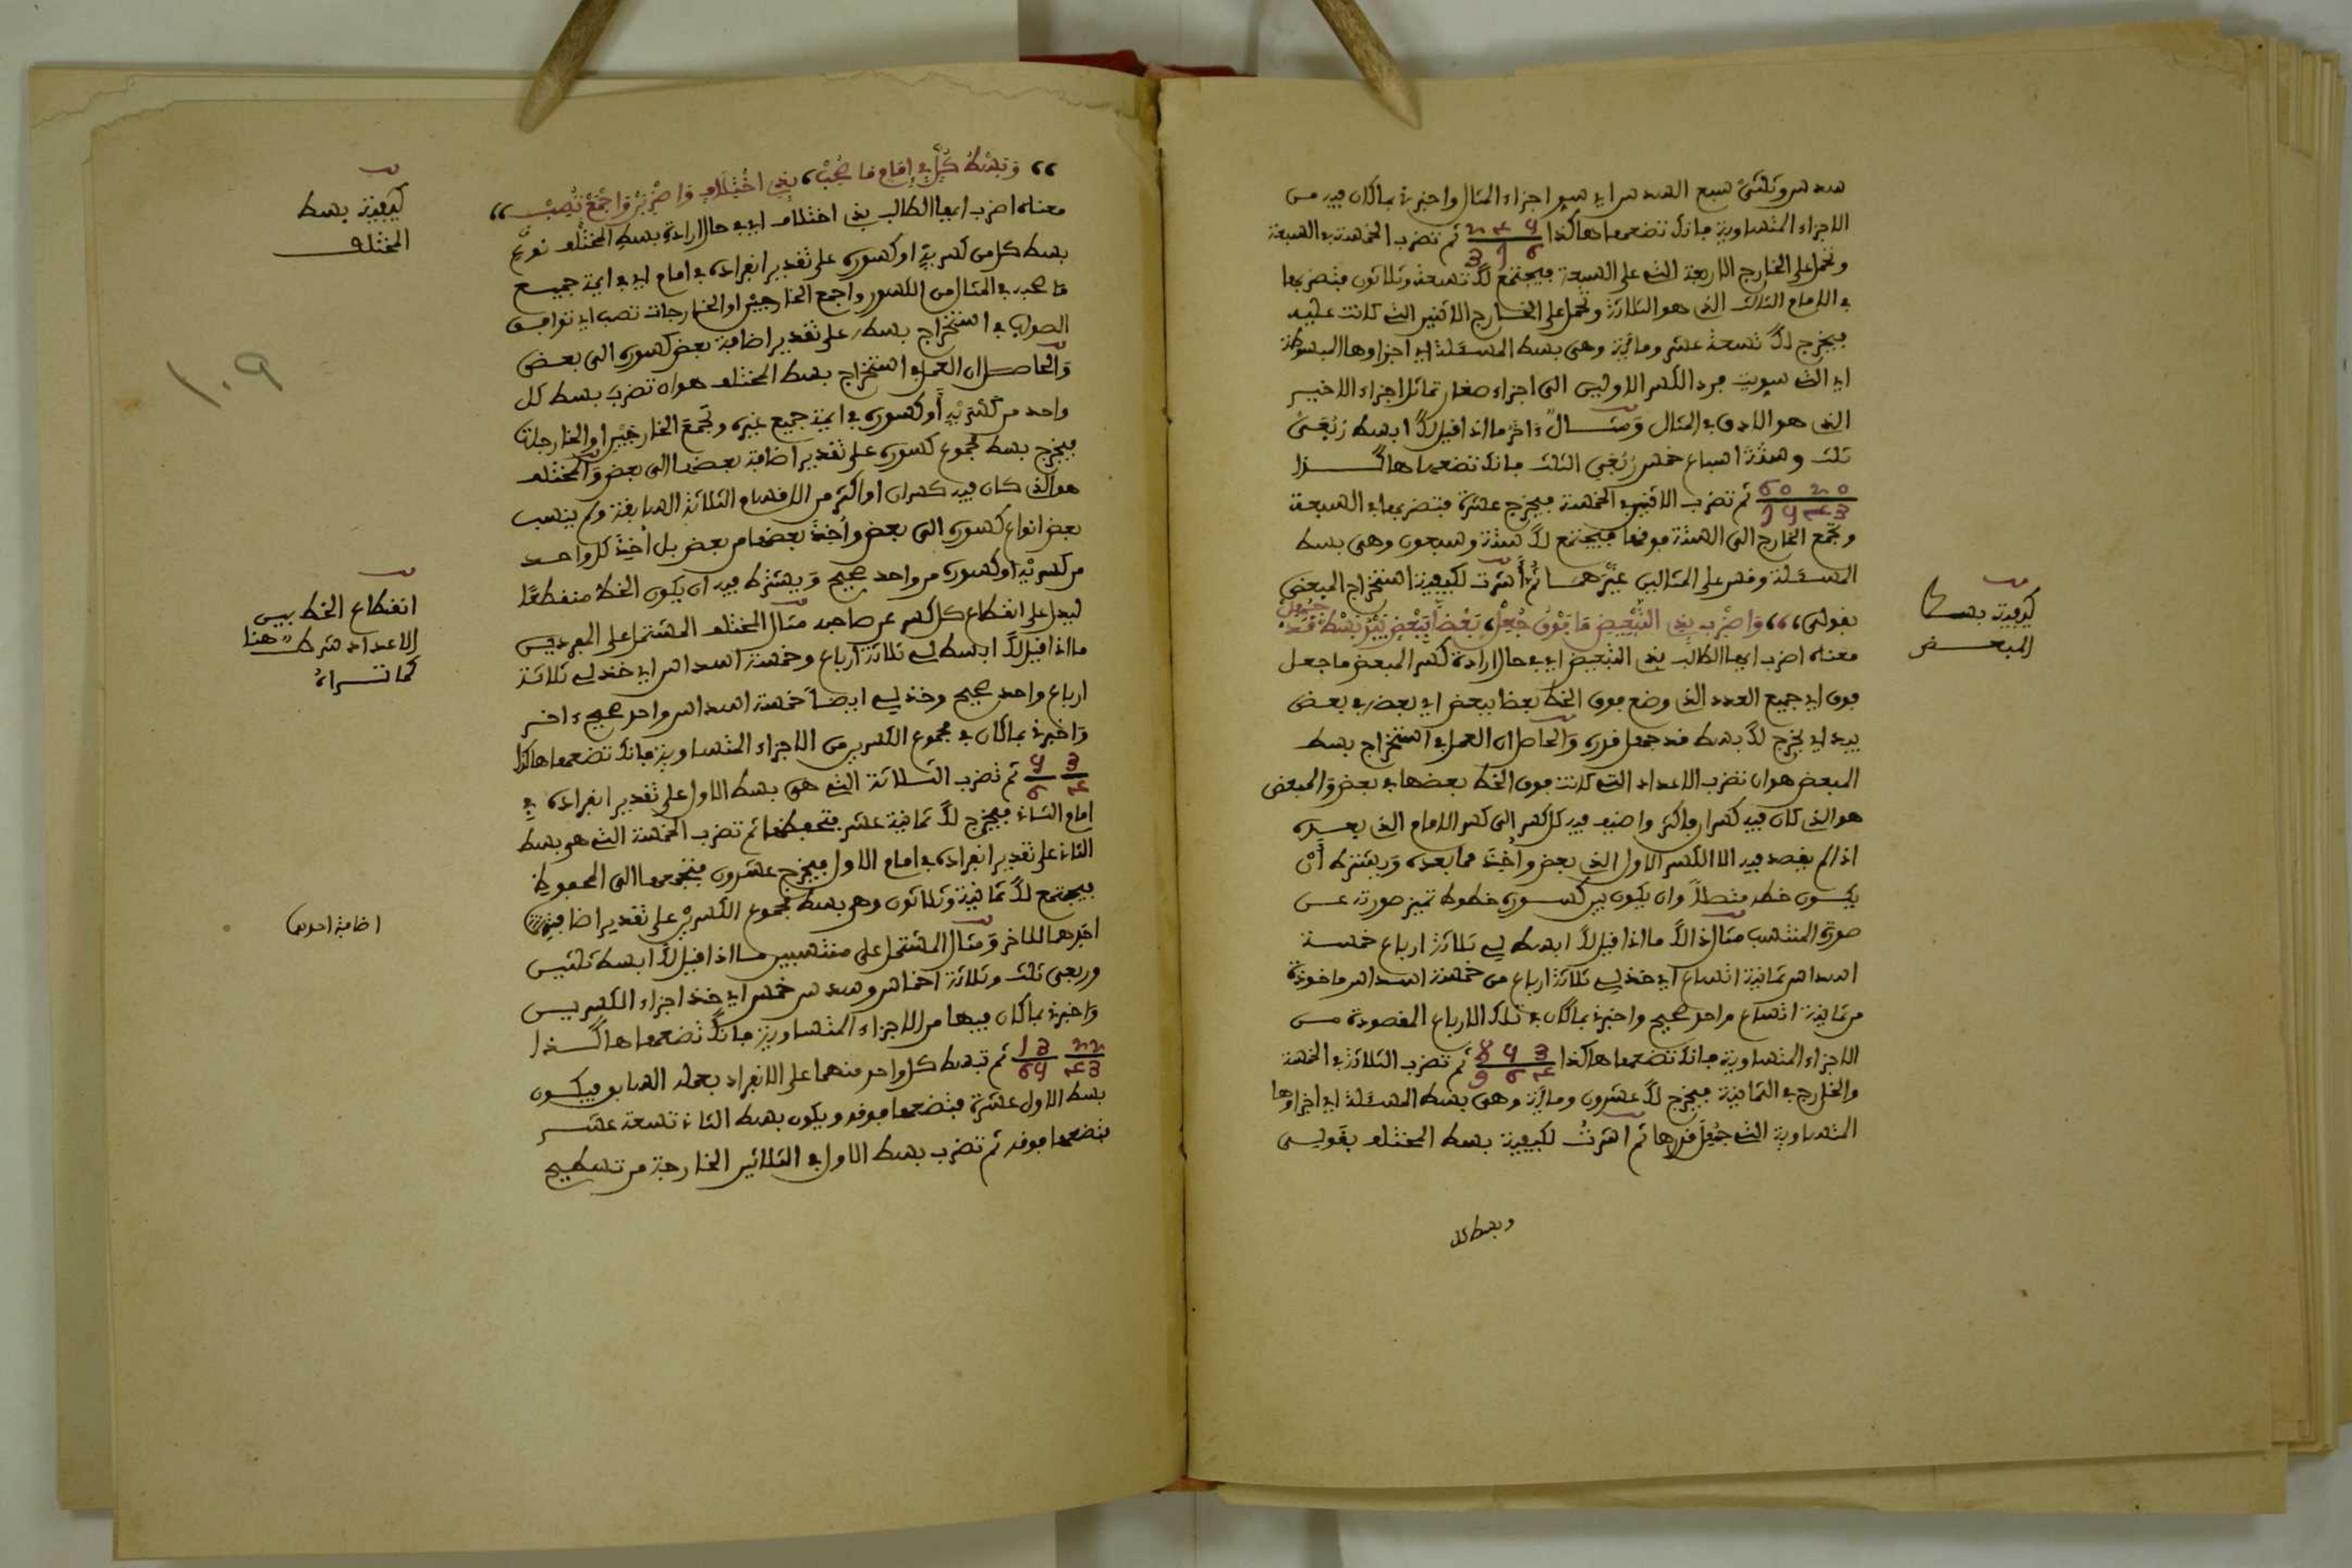 سدس وثلثي سبع السدس اي سو اجزاء المثال واخبرني بما كان فيه من
الاجزاء المتساوية فانك تضعها هاكذا ثم تضرب الخمسة في السبعة
وتحمل على الخارج الاربعة التي على السبعة فيجتمع لك تسعة وثلاثون فتضربها
في الامام الثالث الذي هو الثلاثة وتحمل على الخارج الاثنين التي كانت عليه
فيخرج لك تسعة عشر ومائة وهي بسط المسئلة اي اجزاوها المبسوطة
اي التي سويت فيه الكسر الاولين الى اجزاء صغار تماثل اجزاء الاخير
الذي هو الادق في المثال ومثال ءاخر ما اذا قيل لك ابسط ربعي
ثلث وستة اسباع خمس ربعي الثلث فانك تضعها هاكذا
ثم تضرب الاثنين في الخمسة فيخرج عشرة فتضربها في السبعة
وتجمع الخارج الى الستة فوقها فيجتمع لك ستة وسبعون وهي بسط
المسئلة وقس على المثالين غيرهما ثم أشرت لكيفية استخراج المبعض
بقولي واضرب بذي التبعيض ما فوق جعل بعضا ببعض يبد بسط قد حصل
معناه اضرب ايها الطالب بذي التبعيض اي في حال ارادة كسر المبعض ما جعل
فوق اي جميع العدد الذي وضع فوق الخط بعضا ببعض اي بعضه في بعض
يبد اي يخرج لك بسط قد جهل قدره والحاصل ان العمل في استخراج بسط
المبعض هو ان تضرب الاعداد التي كانت فوق الخط بعضها في بعض والمبعض
هو الذي كان فيه كسران فاكثر واضيف فيه كل كسر الى كسر الامام الذي بعده
اذ لم يقصد فيه الا الكسر الاول الذي بعض وأخذ مما بعده ويشترط أن
يكون خطه متصلا وان يكون بين كسوره خطوط تميز صورته عن
صورة المنتسب مثال ذالك ما اذا قيل لك ابسط لي ثلاثة ارباع خمسة
اسداس ثمانية اتساع اي خذ لي ثلاثة ارباع من خمسة اسداس ماخوذة
من ثمانية اتساع من احد صحيح واخبرني بما كان في تلك الارباع المقصودة من
الاجزاء المتساوية فانك تضعها هاكذا ثم تضرب الثلاثة في الخمسة
والخارج في الثمانية فيخرج لك عشرون ومائة وهي بسط المسئلة اي اجزاوها
المتساوية التي جهل قدرها ثم اشرت لكيفية بسط المختلف بقولي
وبسط كل
كيفية بسط
المبعض
وبسط كل في إمام ما صحب بذي اختلاف واضربن واجمع تصب
معناه اضرب ايها الطالب بذي اختلاف اي في حال ارادة بسط المختلف نوعه
بسط كل من كسريه او كسوره على تقدير انفراده في امام اي في ايمة جميع
ما صحبه في المثال من الكسور واجمع الخارجين او الخارجات تصب اي توافق
الصواب في استخراج بسطه على تقدير اضافة بعض كسوره الى بعض
والحاصل ان العمل في استخراج بسط المختلف هو ان تضرب بسط كل
واحد من كسريه أو كسوره في ايمة جميع غيره وتجمع الخارجين او الخارجات
فيخرج بسط مجموع كسوره على تقدير اضافة بعضها الى بعض والمختلف
هو الذي كان فيه كسران او اكثر من الاقسام الثلاثة السابقة ولم ينسب
بعض انواع كسوره الى بعض وأخذ بعضها من بعض بل أخذ كل واحد
من كسريه او كسوره من واحد صحيح ويشترط فيه ان يكون الخط منقطعا
ليدل على انقطاع كل كسر عن صاحبه مثال المختلف المشتمل على المفردين
ما اذا قيل لك ابسط لي ثلاثة ارباع وخمسة اسداس اي خذ لي ثلاثة
ارباع واحد صحيح وخذ لي ايضا خمسة اسداس واحد صحيح ءاخر
واخبرني بما كان في مجموع الكسرين من الاجزاء المتساوية فانك تضعها هاكذا
ثم تضرب الثلاثة التي هي بسط الاول على تقدير انفراده في
امام الثاني فيخرج لك ثمانية عشر فتحفظها ثم تضرب الخمسة التي هو بسط
الثاني على تقدير انفراده في امام الاول فيخرج عشرون فتجمعها الى المحفوظ
فيجتمع لك ثمانية وثلاثون وهو بسط مجموع الكسرين على تقدير اضافة
احدهما للاخر ومثال المشتمل على منتسبين ما اذا قيل لك ابسط ثلثين
وربعي ثلث وثلاثة اخماس وسدس خمس اي خذ اجزاء الكسرين
واخبرني بما كان فيها من الاجزاء المتساوية فانك تضعها هاكذا
ثم تبسط كل واحد منهما على الانفراد بعمله السابق فيكون
بسط الاول عشرة فتضعها فوقه ويكون بسط الثاني تسعة عشر
فتضعها فوقه ثم تضرب بسط الاول في الثلاثين الخارجة من تسطيح
كيفية بسط
المختلف
١٠٩
انقطاع الخط بين
الاعداد شرط هنا
كما تراه